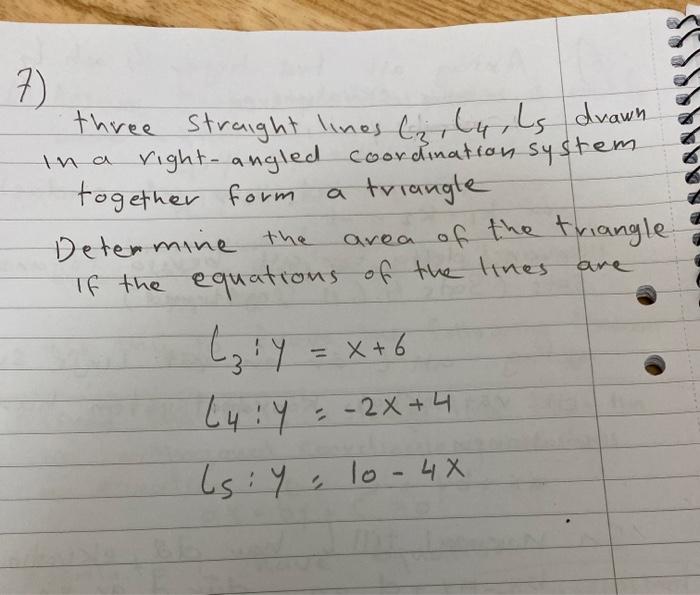 7)
three straight lines L3, L4, L5 drawn
in a right-angled coordination system
together form a triangle
Determine the area of the triangle
if the equations of the lines are
L3 : y = x+6
L4 : y = -2x+4
L5 : y = 10 - 4x